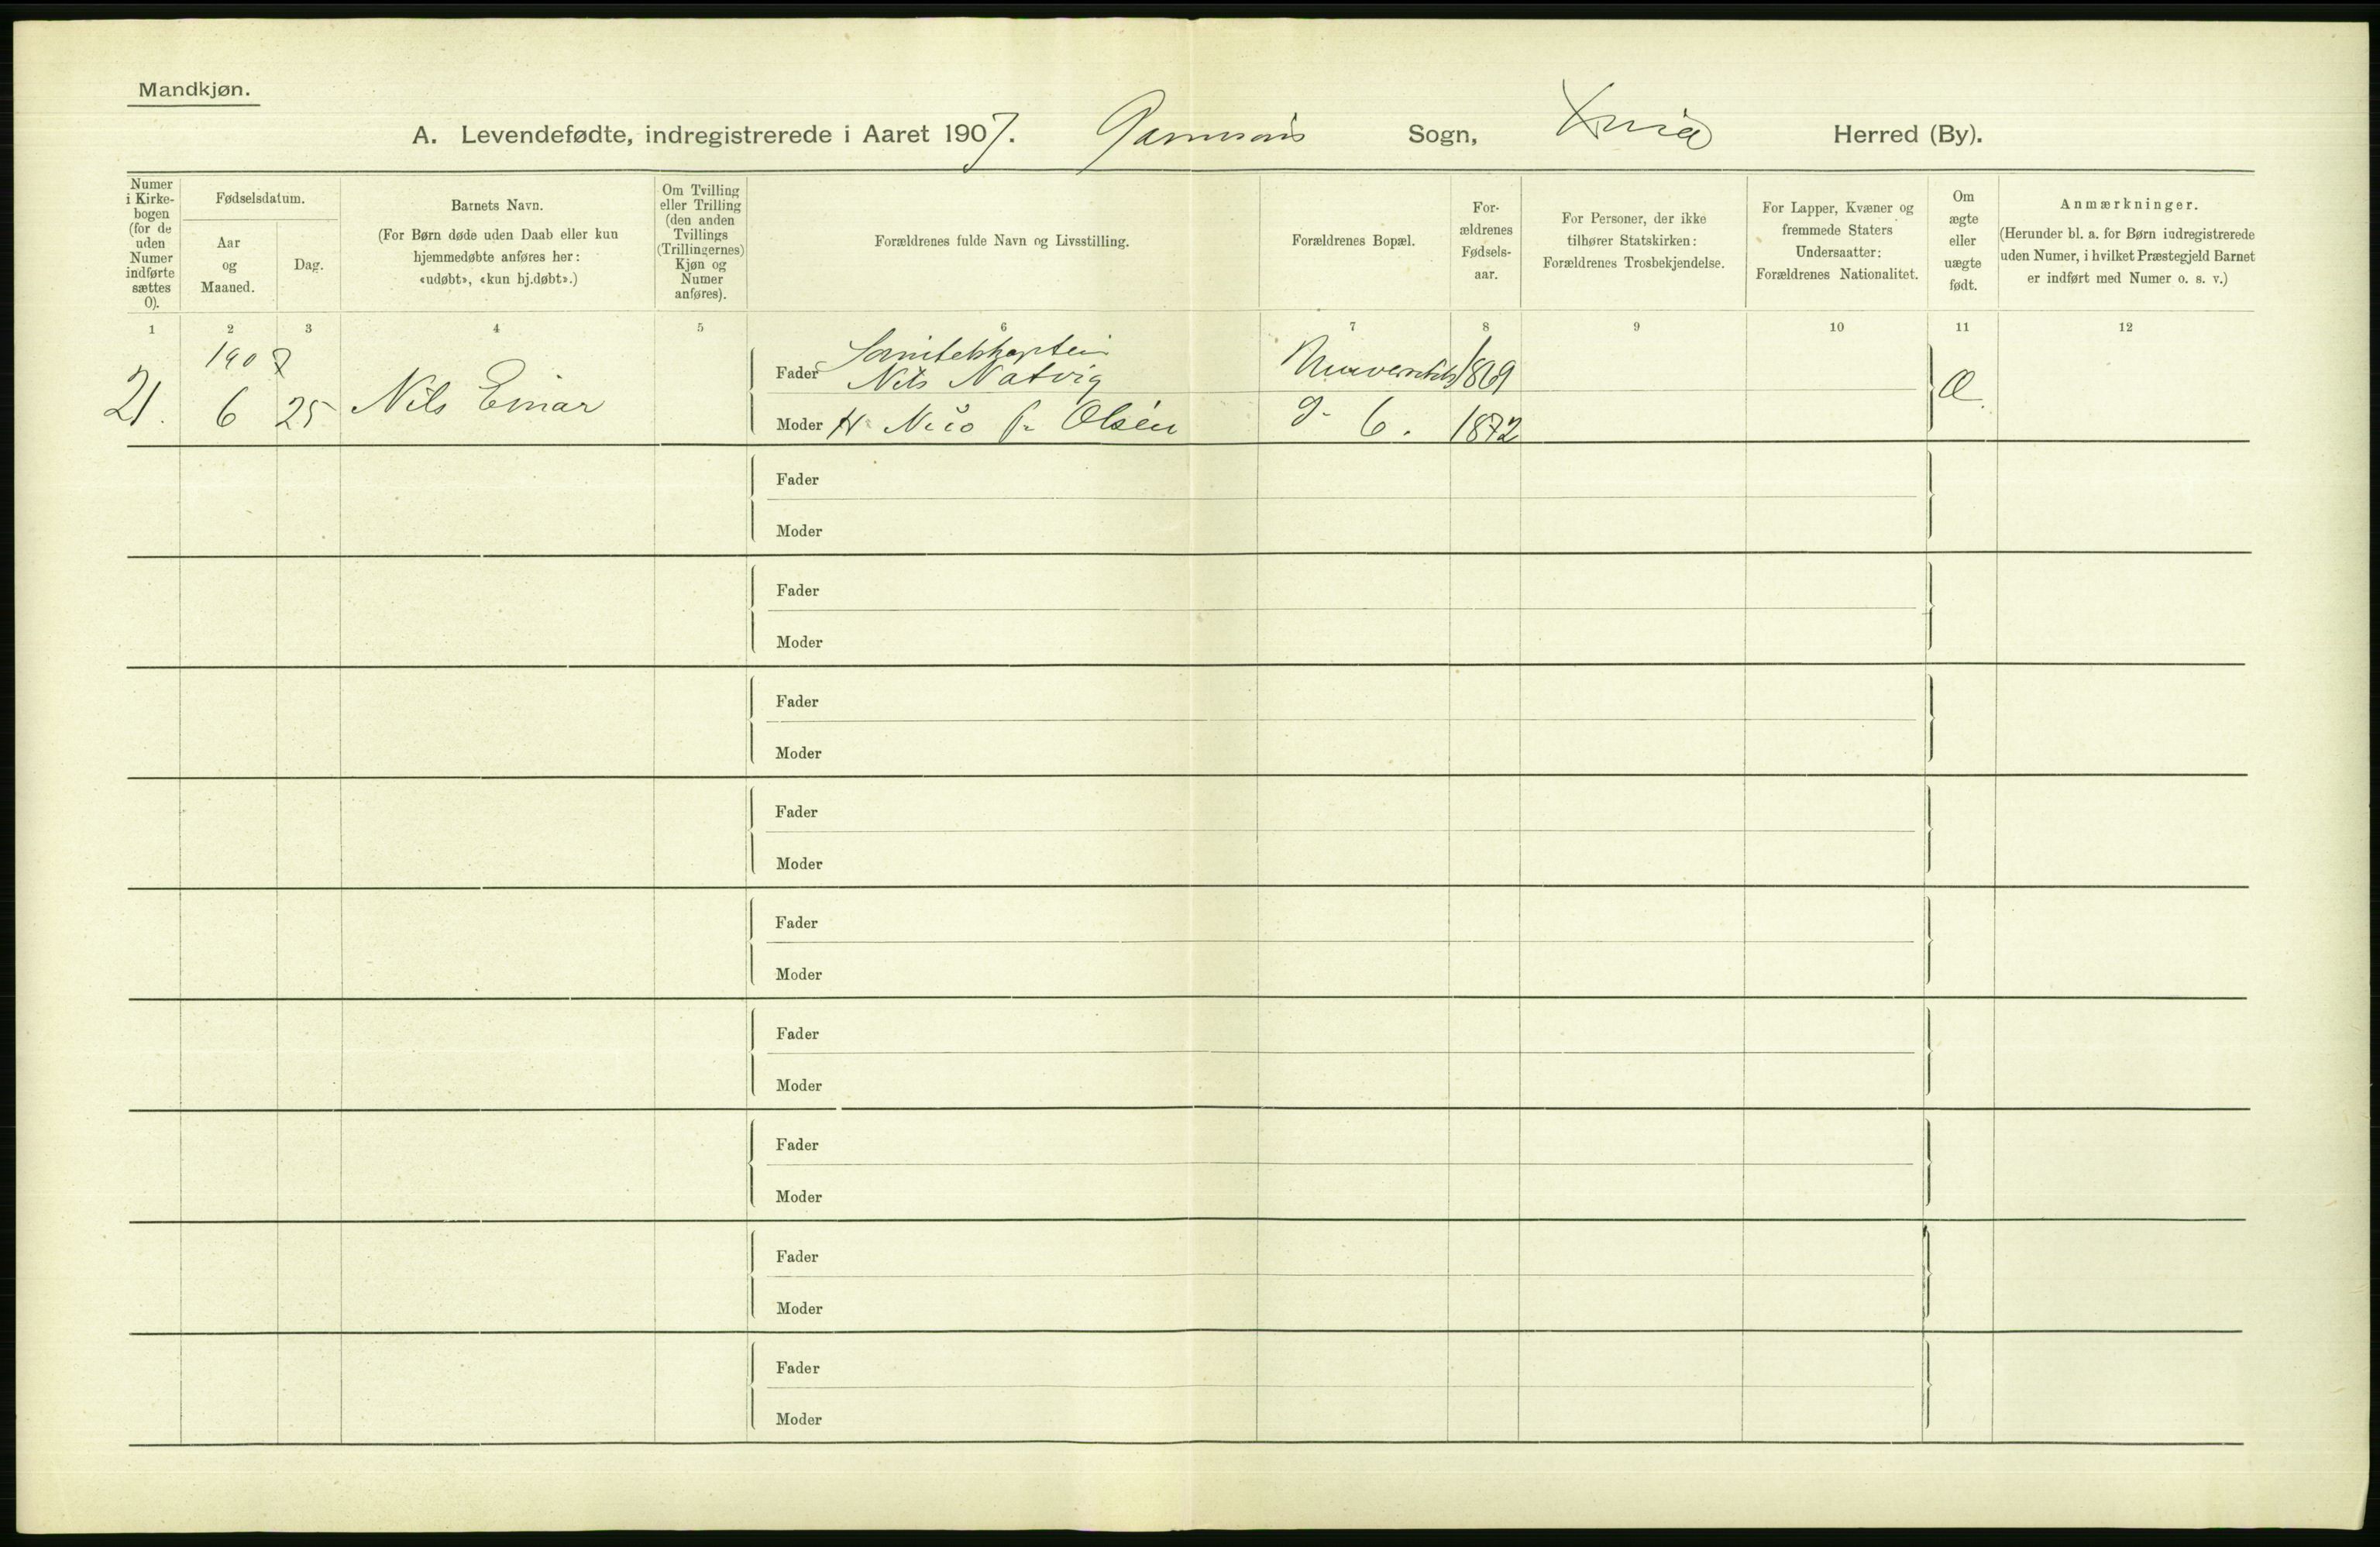 Mandkjøn.
A. Levendefødte, indregistrerede i Aaret 1907. Garnisons Sogn, Xnia Herred (By).
Numer i Kirkebogen (for de uden Numer indførte sættes 0).
Fødselsdatum.
Aar og Maaned.
Dag.
Barnets Navn.
(For Børn døde uden Daab eller kun hjemmedøbte anføres her: «udøbt», «kun hj.døbt».)
Om Tvilling eller Trilling (den anden Tvillings (Trillingernes) Kjøn og Numer anføres).
Forældrenes fulde Navn og Livsstilling.
Forældrenes Bopæl.
Forældrenes Fødselsaar.
For Personer, der ikke tilhører Statskirken: Forældrenes Trosbekjendelse.
For Lapper, Kvæner og fremmede Staters Undersaatter: Forældrenes Nationalitet.
Om ægte eller uægte født.
Anmærkninger.
(Herunder bl. a. for Børn indregistrerede uden Numer, i hvilket Præstegjeld Barnet er indført med Numer o. s. v.)
1 2 3 4 5 6 7 8 9 10 11 12
1907 Sanitetskaptein
Fader Nils Natvig Universitets 1869
21. 6 25 Nils Einar Æ.
Moder Olsen g. 6. 1872
Fader
Moder
Fader
Moder
Fader
Moder
Fader
Moder
Fader
Moder
Fader
Moder
Fader
Moder
Fader
Moder
Fader
Moder